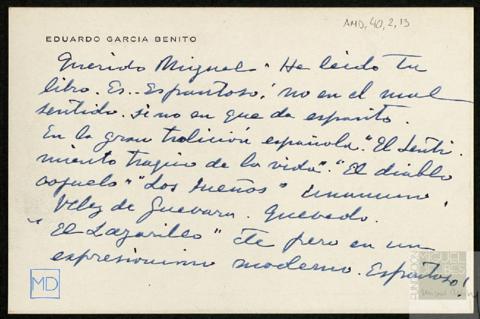 AMD, 40, 2, 13
EDUARDO GARCIA BENITO
Querido Miguel. He leido tu
libro. Es.. Espantoso! no en el mal
sentido. si no en que da espanto.
En la gran tradición española. "El Senti.
miento tragico de la vida". "El diablo
cojuelo" "Los Sueños" Unamuno,
Velez de Guevara. Quevedo.
"El Lazarillo" Etc pero en un
expresionismo moderno. Espantoso!
MD
FUNDACIÓN
MIGUEL
DELIBES